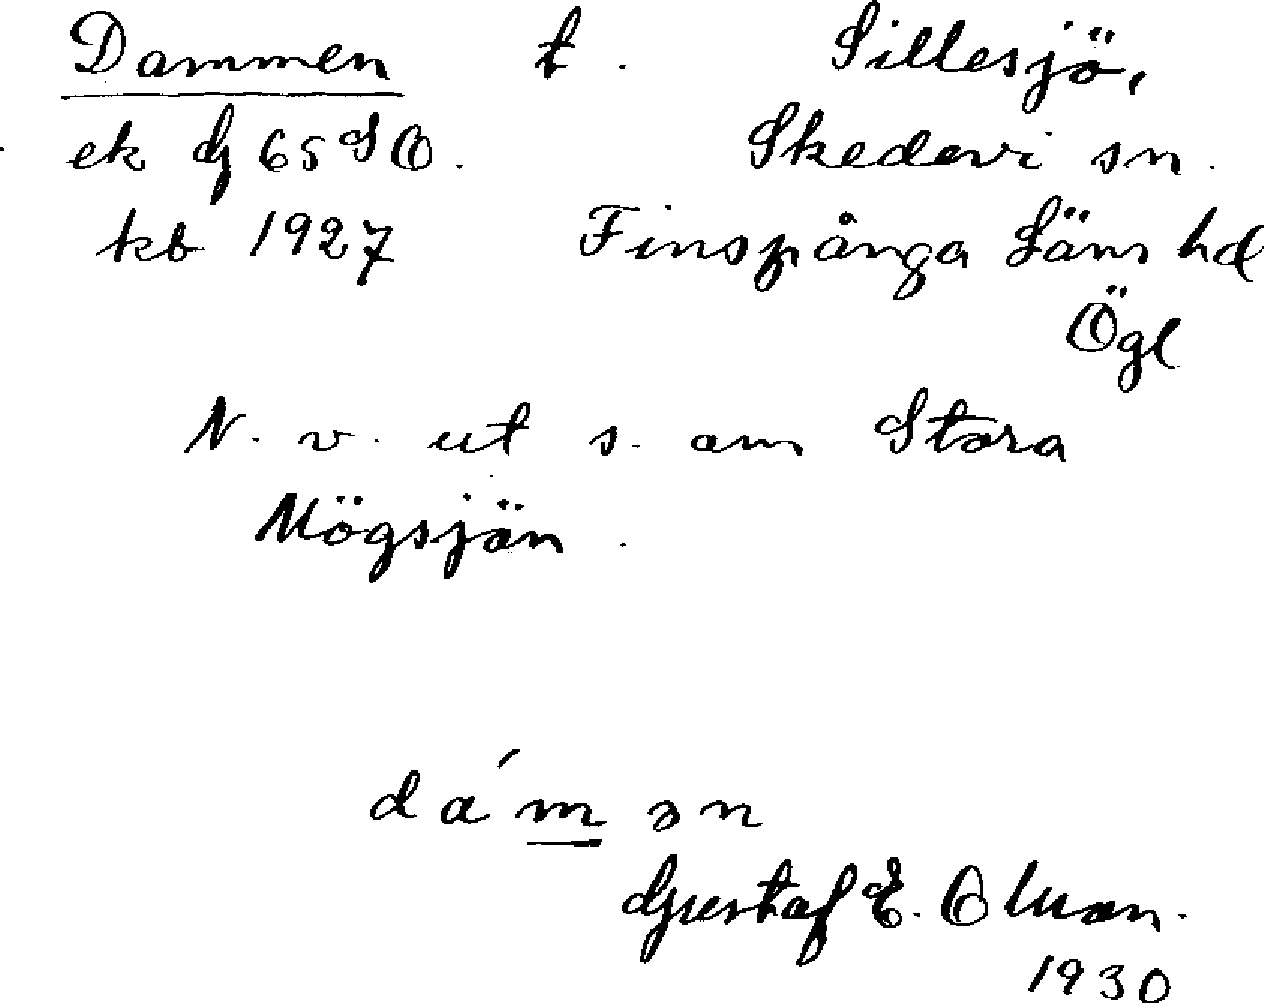 Dammen t. Sillesjö,
ek G 65 SO. Skedevi sn.
kb 1927 Finspånga Läns hd
Ögl
N. v. ut s. om Stora
Mögsjön.
da´mən
Gustaf E. Olsson.
1930